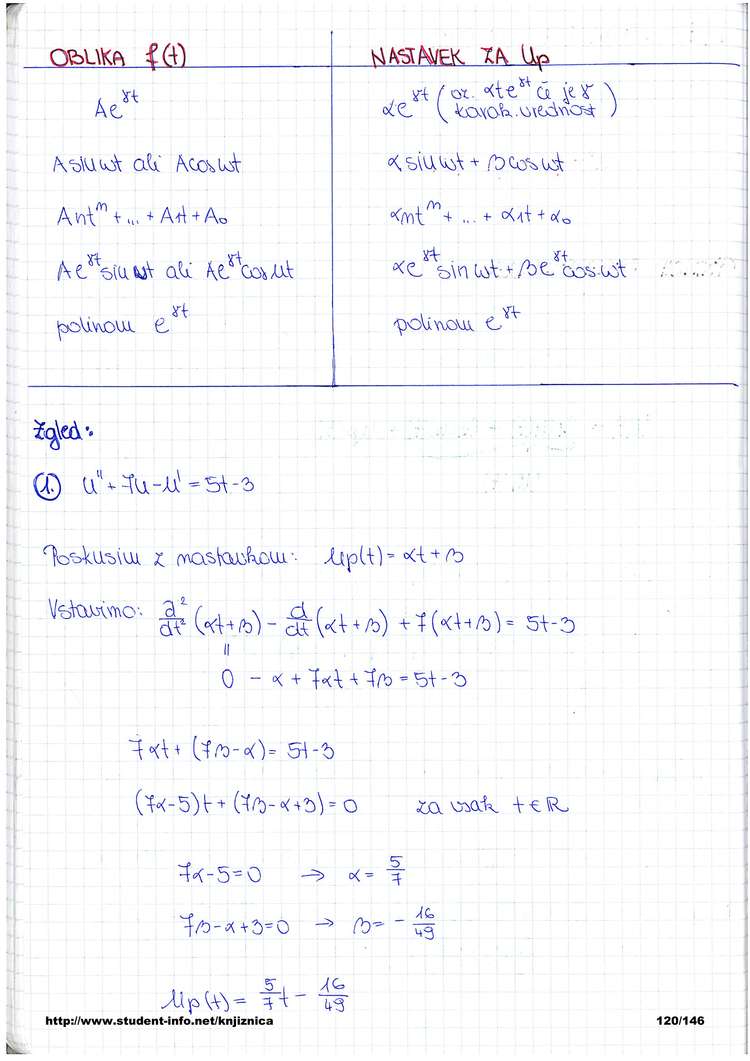 OBLIKA f(t) NASTAVEK ZA Up
Ae^γt αe^γt ( oz. αte^γt če je γ karak. vrednost )
Asinωt ali Acosωt αsinωt + βcosωt
Ant^n + ... + A1t + A0 αnt^n + ... + α1t + α0
Ae^γt sinωt ali Ae^γt cosωt αe^γt sinωt + βe^γt cosωt
polinom e^γt polinom e^γt
Zgled:
1. u'' + 7u - u' = 5t - 3
Poskusim z nastavkom: up(t) = αt + β
Vstavimo: d²/dt² (αt + β) - d/dt (αt + β) + 7(αt + β) = 5t - 3
||
0 - α + 7αt + 7β = 5t - 3
7αt + (7β - α) = 5t - 3
(7α - 5)t + (7β - α + 3) = 0 za vsak t ∈ ℝ
7α - 5 = 0 → α = 5/7
7β - α + 3 = 0 → β = - 16/49
up(t) = 5/7 t - 16/49
http://www.student-info.net/knjiznica 120/146